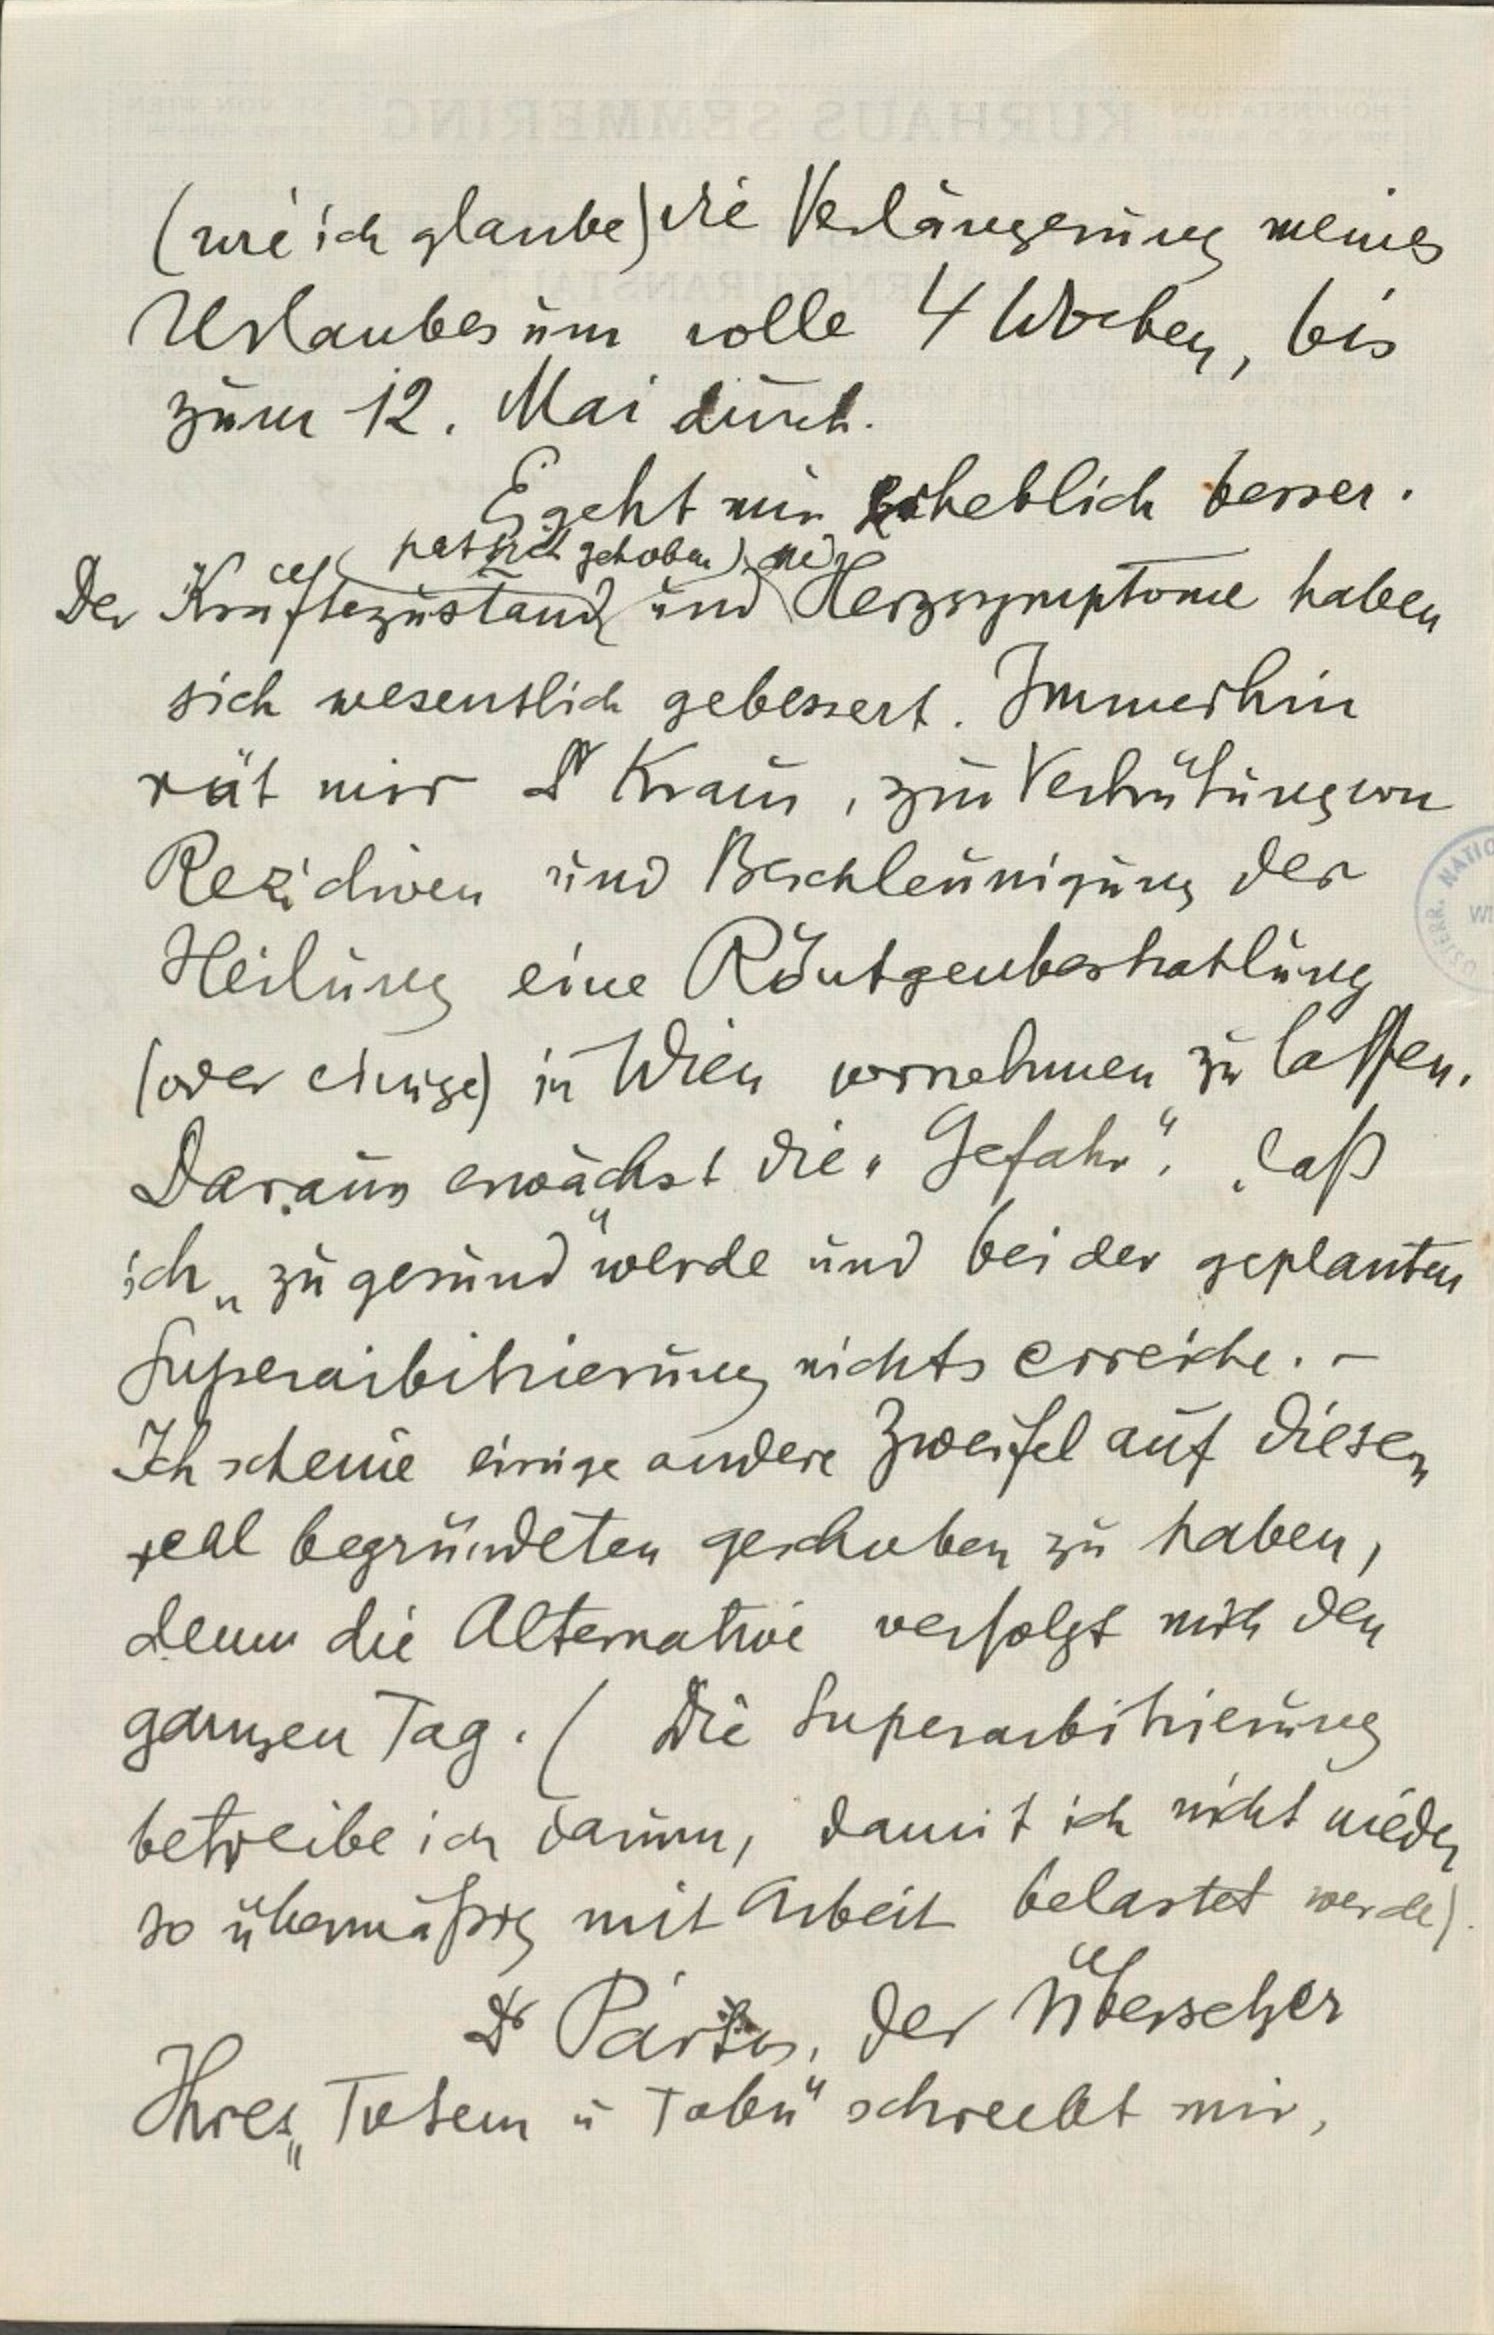 (wie ich glaube) die Verlängerung meines
Urlaubes um volle 4 Wochen, bis
zum 12. Mai durch.
Es geht mir erheblich besser.
hat sich gehoben), die
Der Kräftezustand und Herzsymptome haben
sich wesentlich gebessert. Immerhin
rät mir Dr Kraus, zur Verhütung von
Rezidiven und Beschleunigung der
Heilung eine Röntgenbestrahlung
(oder einige) in Wien vornehmen zu lassen.
Daraus erwächst die „Gefahr“, daß
ich „zu gesund“ werde und bei der geplanten
Superarbitrierung nichts erreiche. –
Ich scheine einige andere Zweifel auf diesen
real begründeten geschoben zu haben,
denn die Alternative verfolgt mich den
ganzen Tag. (Die Superarbitrierung
betreibe ich darum, damit ich nicht wieder
so übermäßig mit Arbeit belastet werde).
Dr Pártos, der Übersetzer
Ihres „Totem u Tabu“ schreibt mir,
KURHAUS SEMMERING